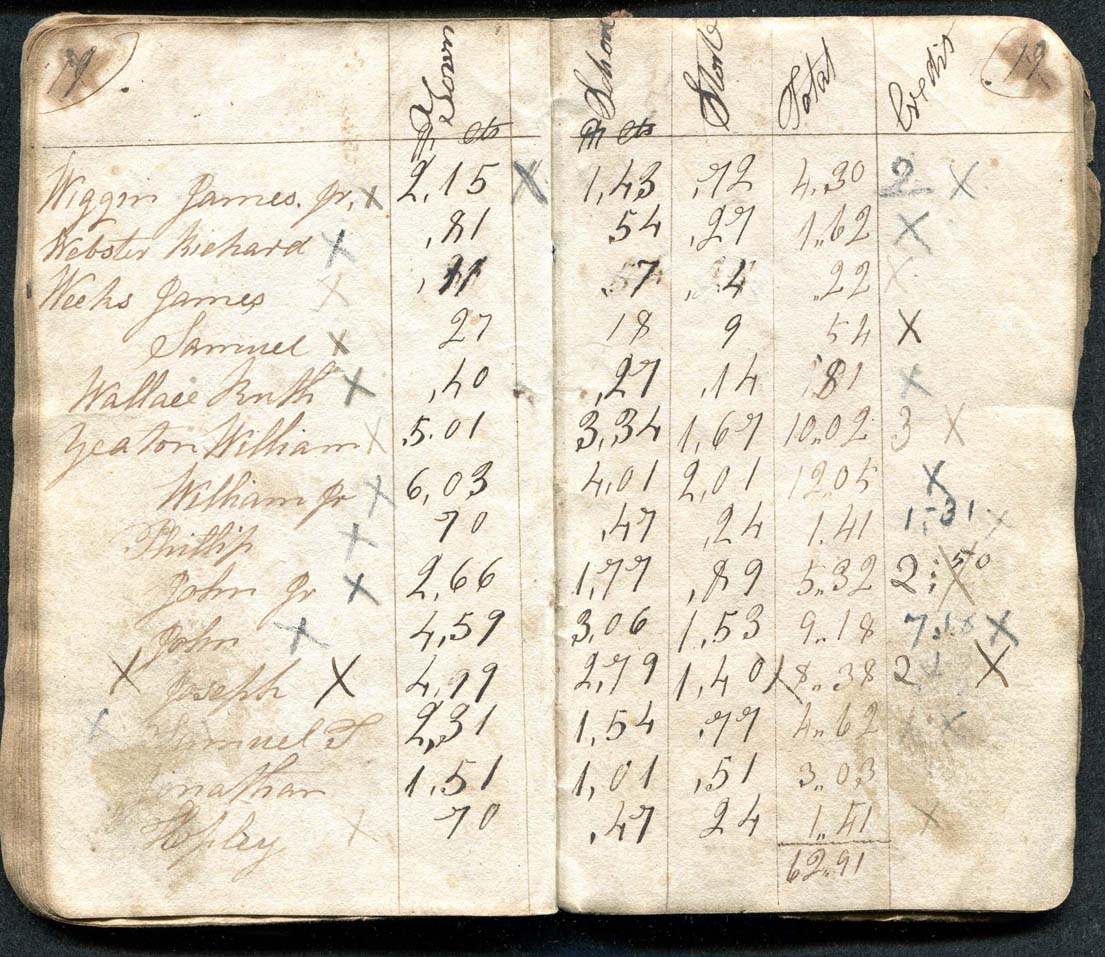 19 Town School State Total Credit 19
$ cts $ cts
Wiggin James, Jr, X 2,15 X 1,43 ,72 4,30 2 X
Webster Richard X ,81 ,54 ,27 1,,62 X
Weeks James X ,11 ,4 ,,22 X
Samuel X 27 18 9 54 X
Wallace Ruth X ,40 ,27 ,14 ,81 X
Yeaton William X 5.01 3,34 1,67 10,,02 3 X
William Jr X 6,03 4,01 2,01 12,05 X
Phillip X 70 ,47 ,24 1.41 1,,31 X
John Jr X 2,66 1,77 ,89 5,,32 2 50 X
John X 4,59 3,06 1,53 9,,18 7,18 X
X Joseph X 4,19 2,79 1,40 X 8,,38 2 X X
X Samuel S 2,31 1,54 ,77 4,,62 X X
Jonathan 1,51 1,01 ,51 3,03
Hopley X 70 ,47 24 1,,41 X
62,,91